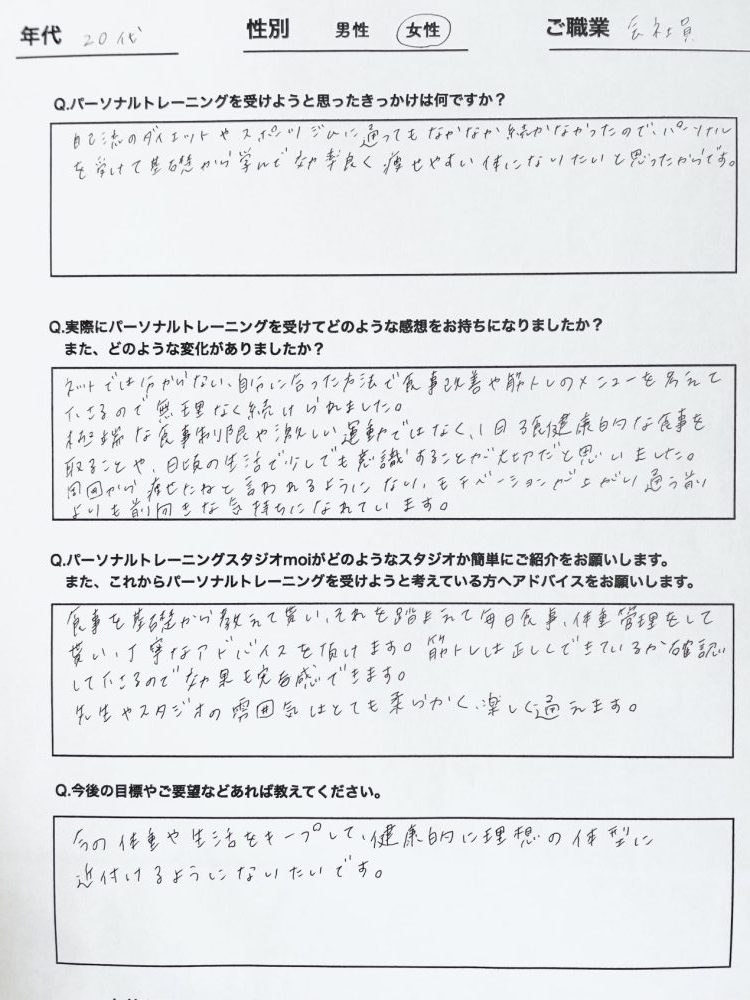 年代 20代 性別 男性 女性 ご職業 会社員
Q.パーソナルトレーニングを受けようと思ったきっかけは何ですか？
自己流のダイエットやスポーツジムに通ってもなかなか続かなかったので、パーソナル
を受けて基礎から学んで効率良く痩せやすい体になりたいと思ったからです。
Q.実際にパーソナルトレーニングを受けてどのような感想をお持ちになりましたか？
また、どのような変化がありましたか？
ネットでは分からない、自分に合った方法で食事改善や筋トレのメニューを考えて
下さるので無理なく続けられました。
極端な食事制限や激しい運動ではなく、1日3食健康的な食事を
取ることや、日頃の生活で少しでも意識することが大切だと思いました。
周囲から痩せたねと言われるようになり、モチベーションが上がり通う前
よりも前向きな気持ちになれています。
Q.パーソナルトレーニングスタジオmoiがどのようなスタジオか簡単にご紹介をお願いします。
また、これからパーソナルトレーニングを受けようと考えている方へアドバイスをお願いします。
食事を基礎から教えて貰い、それを踏まえて毎日食事、体重管理をして
貰い、丁寧なアドバイスを頂けます。筋トレは正しくできているか確認
して下さるので効果も実感できます。
先生やスタジオの雰囲気はとても柔らかく、楽しく通えます。
Q.今後の目標やご要望などあれば教えてください。
今の体重や生活をキープして、健康的に理想の体型に
近付けるようになりたいです。